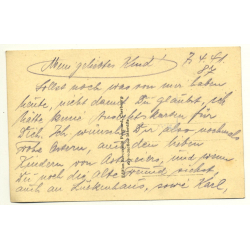 Mein geliebtes Kind!
7.4.41
Sollst noch was von mir haben
heute, nicht damit Du glaubst, ich
hätte keine Ansichtskarten für
Dich. Ich wünsche Dir also nochmals
frohe Ostern, auch den lieben
Kindern von und wenn
Du noch die alte Freund siehst,
auch an Lückenhaus, sowie Karl,